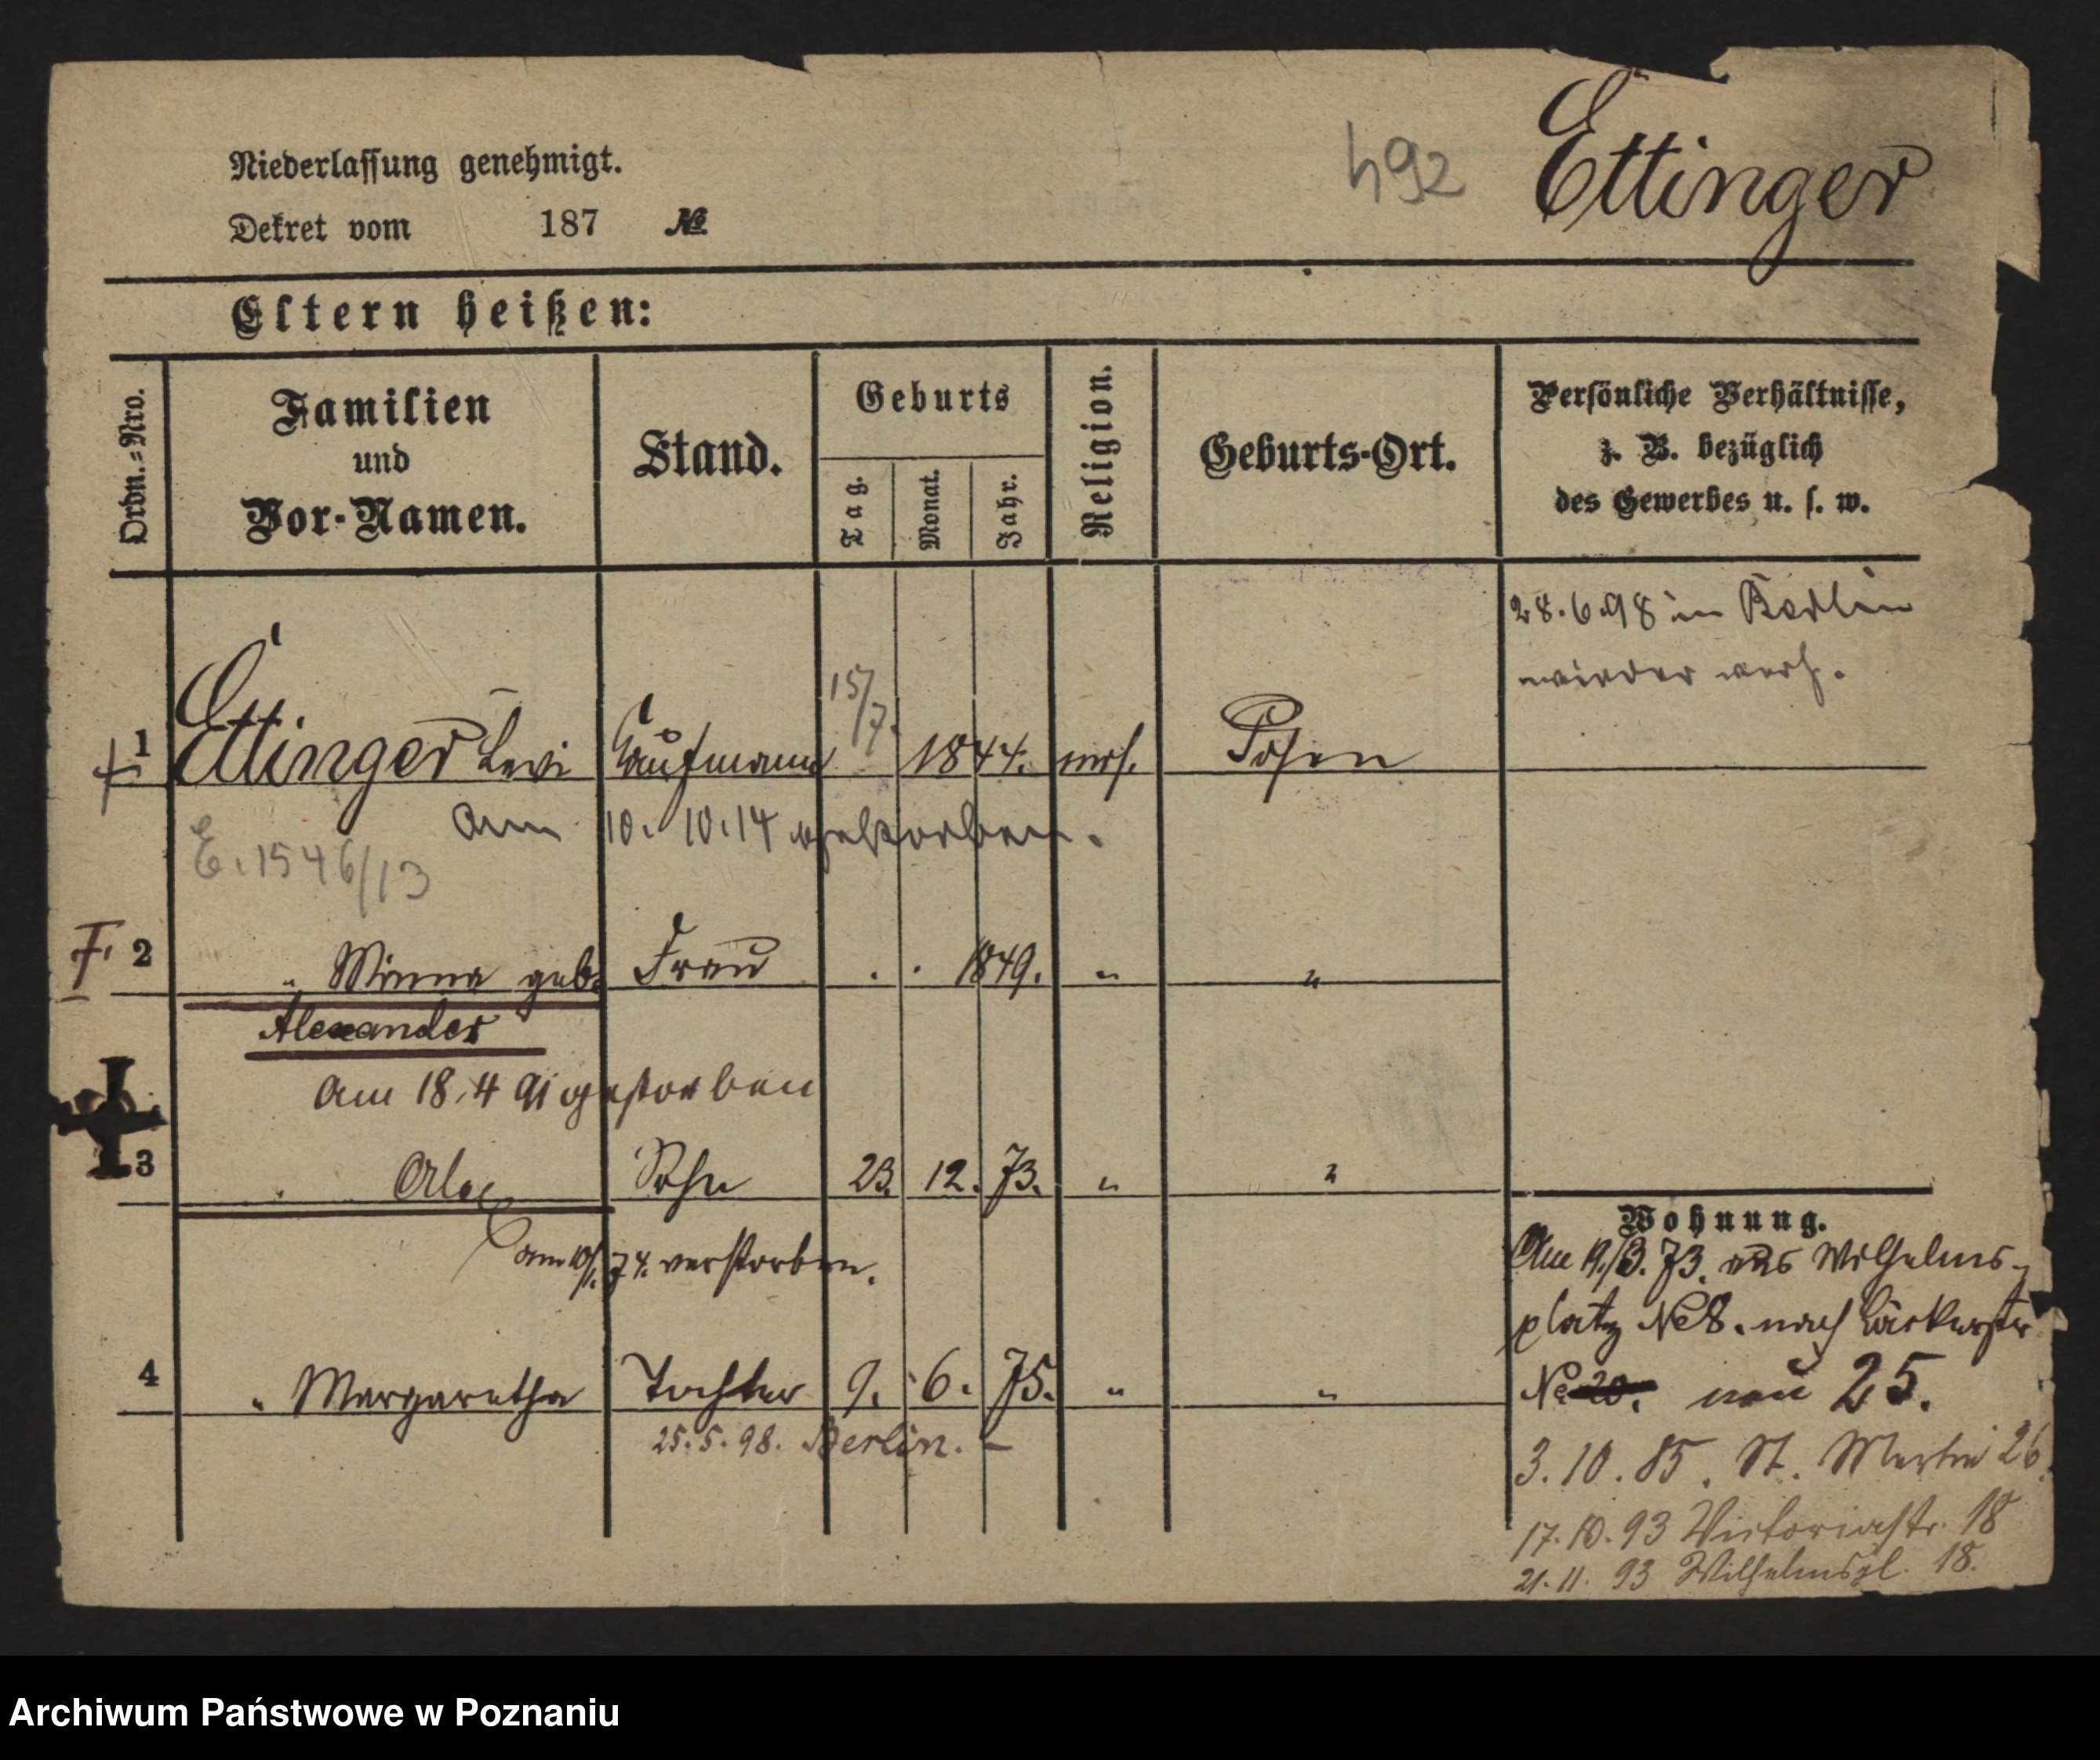 492 Ettinger
Niederlassung genehmigt.
Dekret vom 187 №
Eltern heißen:
Ordn.=Nro.
Familien
und
Vor-Namen.
Stand.
Geburts
Tag.
Monat.
Jahr.
Religion.
Geburts-Ort.
Persönliche Verhältnisse,
z. B. bezüglich
des Gewerbes u. s. w.
28.6.98 in Berlin
wieder verh.
15/7.
1 Ettinger Levi Kaufmann 1844. mos. Posen
am 10. 10. 14 gestorben.
E. 1546/13
2 " Minna geb. Frau . . 1849. " "
Alexander
am 18.4 91 gestorben
3 " Alex Sohn 23. 12. 73. " "
am 10/1. 74. verstorben.
4 " Margaretha Tochter 9. 6. 75. " "
25.5.98. Berlin. –
Wohnung.
Wilhelms-
platz № 8. nach
№ 20. neu 25.
3.10.85. St. Martin 26.
17.10.93 Victoriastr. 18
21.11.93 Wilhelmspl. 18.
Archiwum Państwowe w Poznaniu